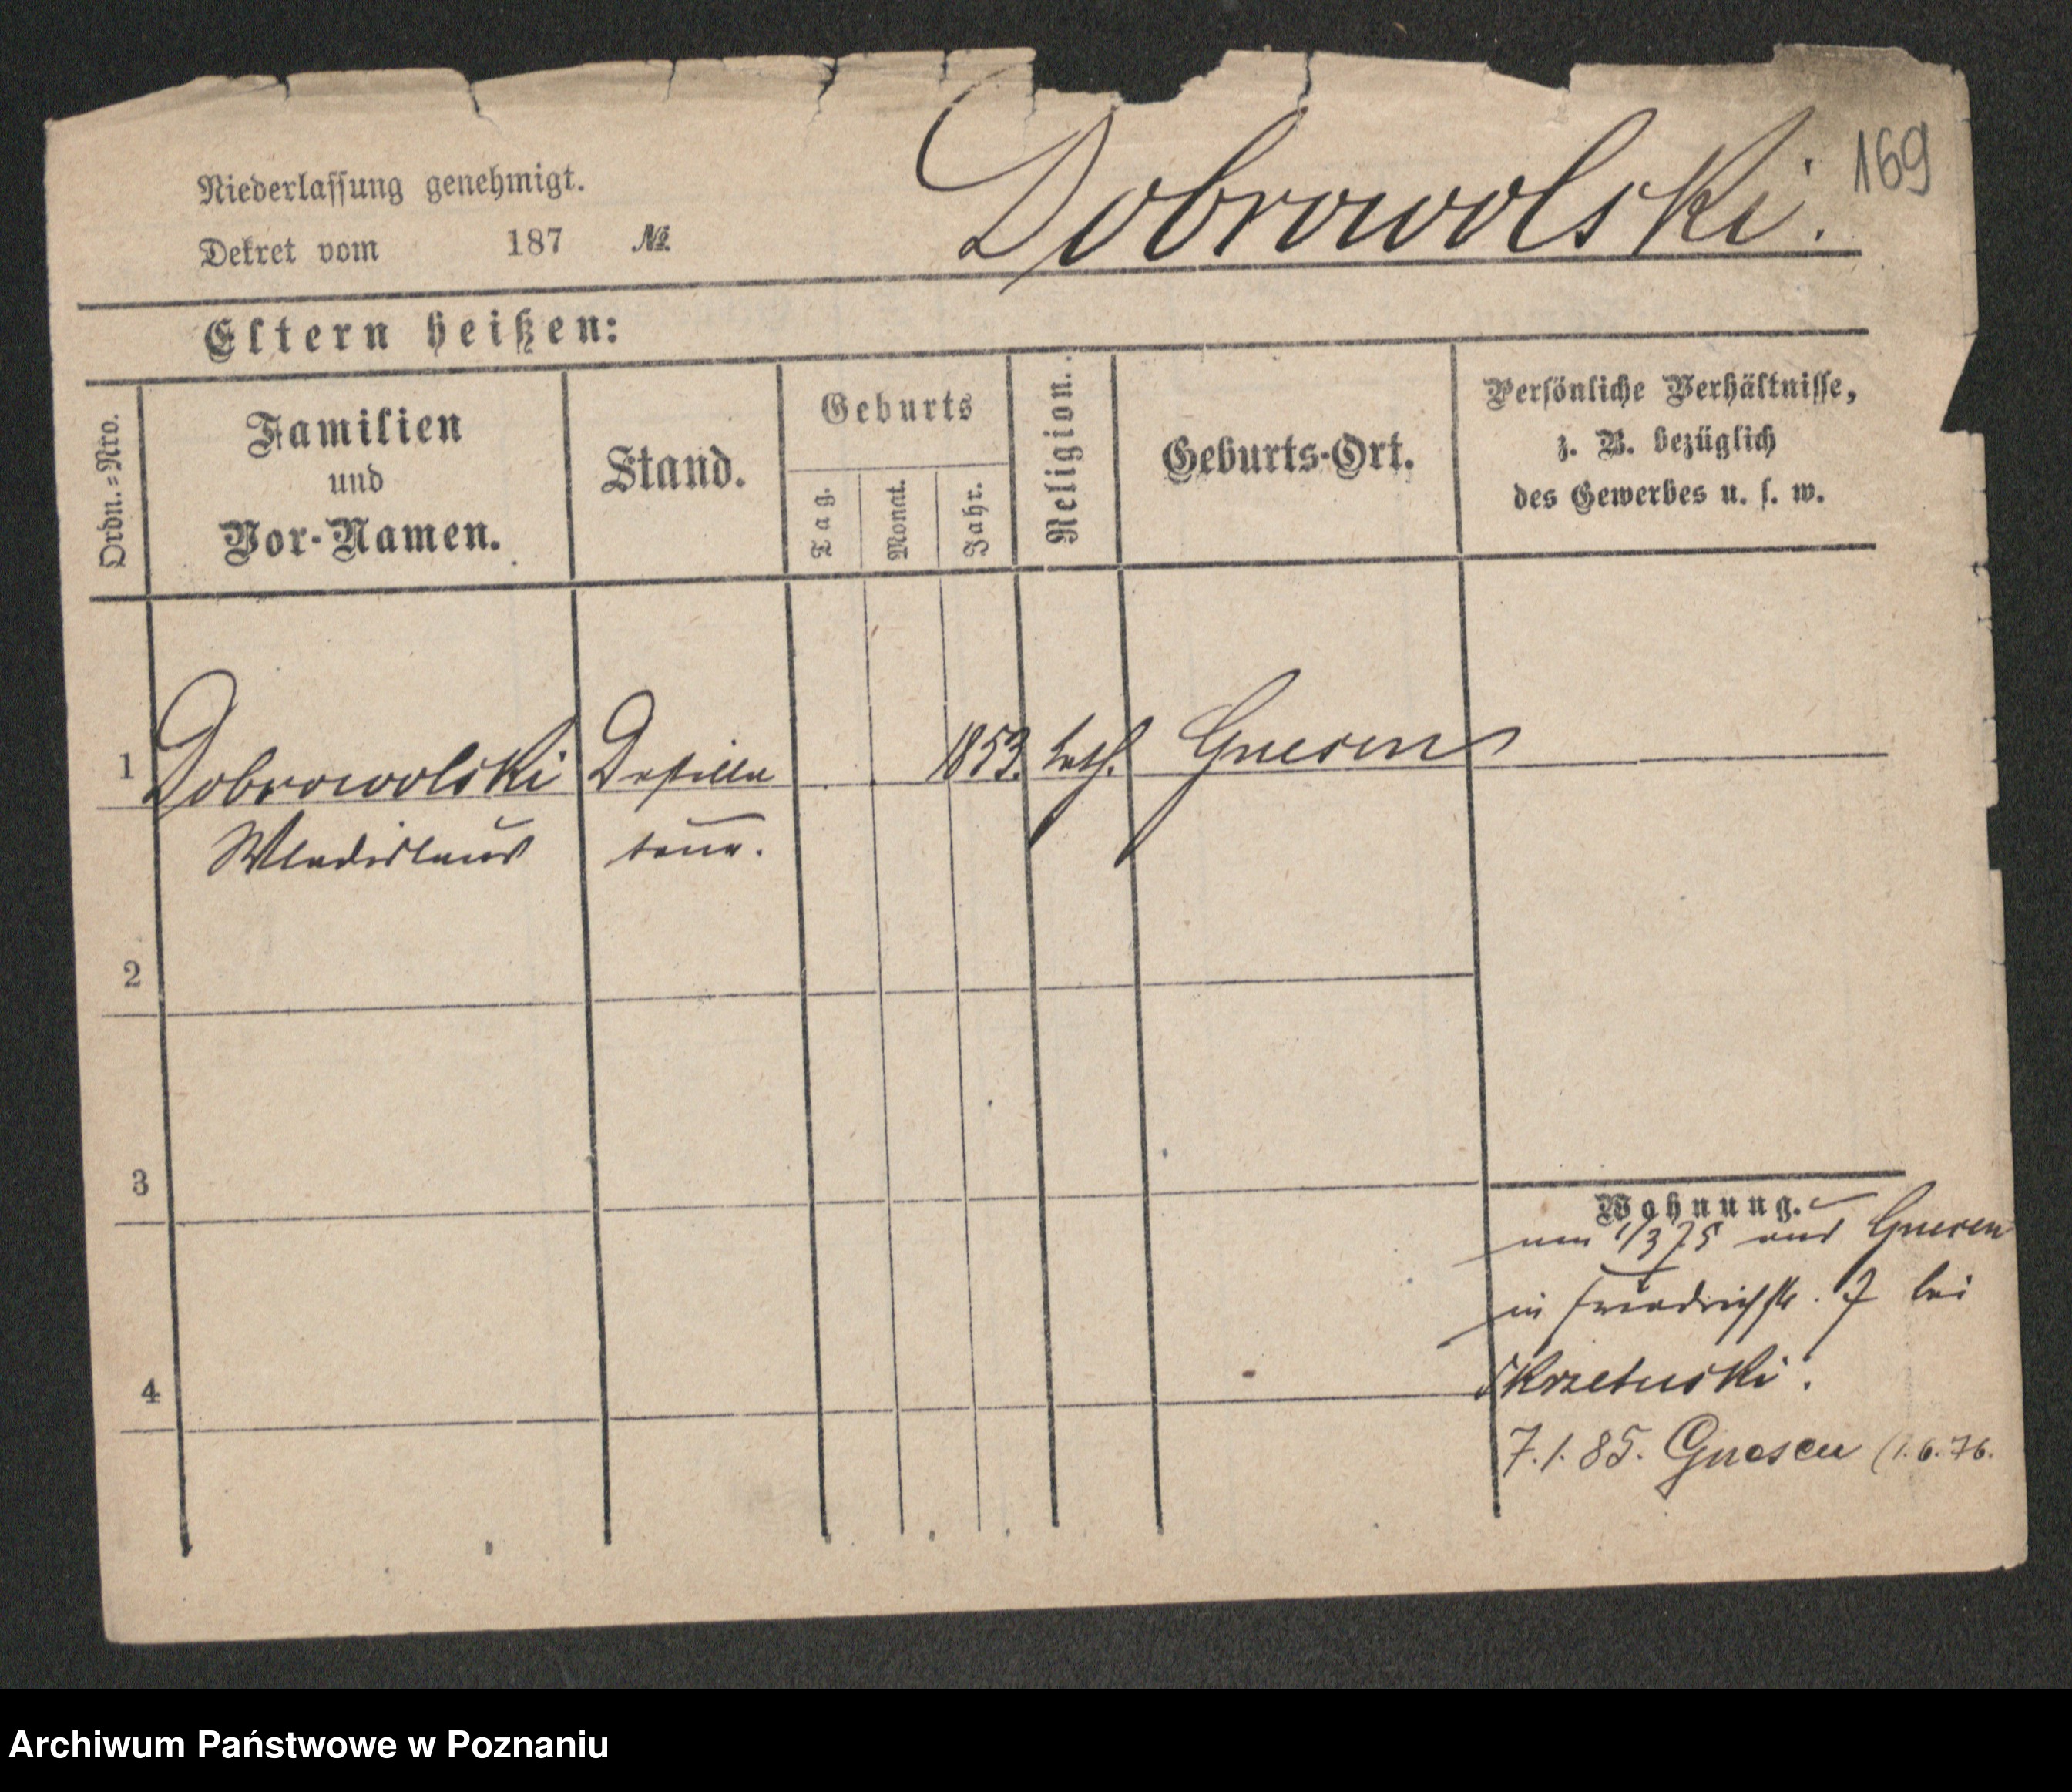 169
Dobrowolski.
Niederlassung genehmigt.
Dekret vom 187 №
Eltern heißen:
Ordn.=Nro.
Familien
und
Vor-Namen.
Stand.
Geburts
Tag.
Monat.
Jahr.
Religion.
Geburts-Ort.
Persönliche Verhältnisse,
z. B. bezüglich
des Gewerbes u. s. w.
1 Dobrowolski Destilla 1853. kath. Gnesen
Wladislaus teur.
2
3
4
Wohnung.
1/3 75 aus Gnesen
in Friedrichstr. 7 bei
Skrzetuski.
7.1.85. Gnesen (1.6.76.
Archiwum Państwowe w Poznaniu